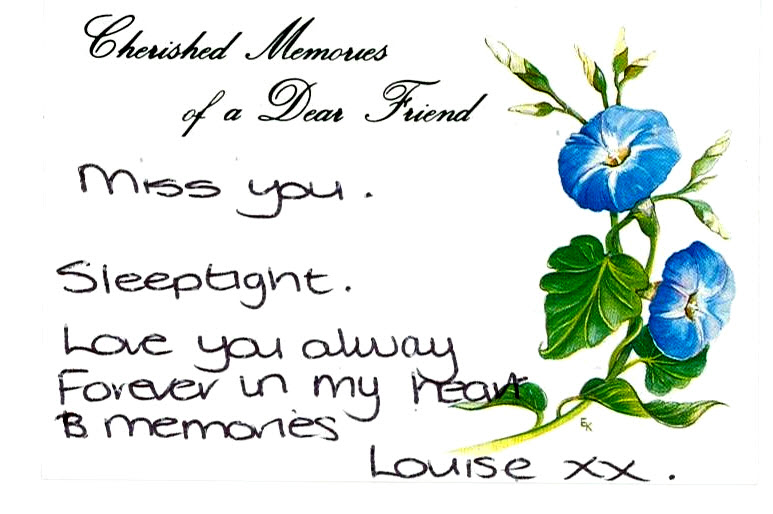 Cherished Memories
of a Dear Friend
Miss you.
Sleeptight.
Love you alway
Forever in my heart
& memories
Louise xx.
EK